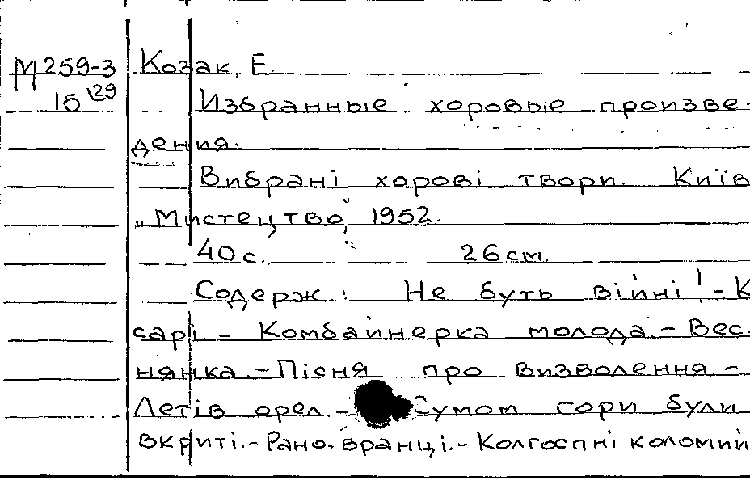 М259-3 Козак, Е.
15/29 Избранные хоровые произве-
дения.
Вибрані хорові твори. Київ
„Мистецтво", 1952.
40 с. 26 см.
Содерж.: Не буть війні! - К
сарі - Комбайнерка молода. - Вес-
нянка. - Пісня про визволення -
Летів орел. - Сумом гори були
вкриті. - Рано-вранці. - Колгоспні коломий